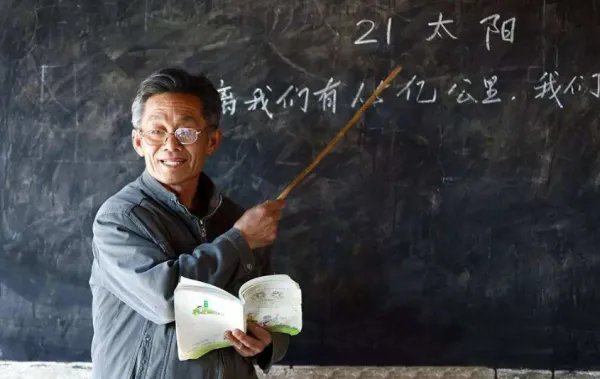 21 太阳
离我们有1.5亿公里.我们